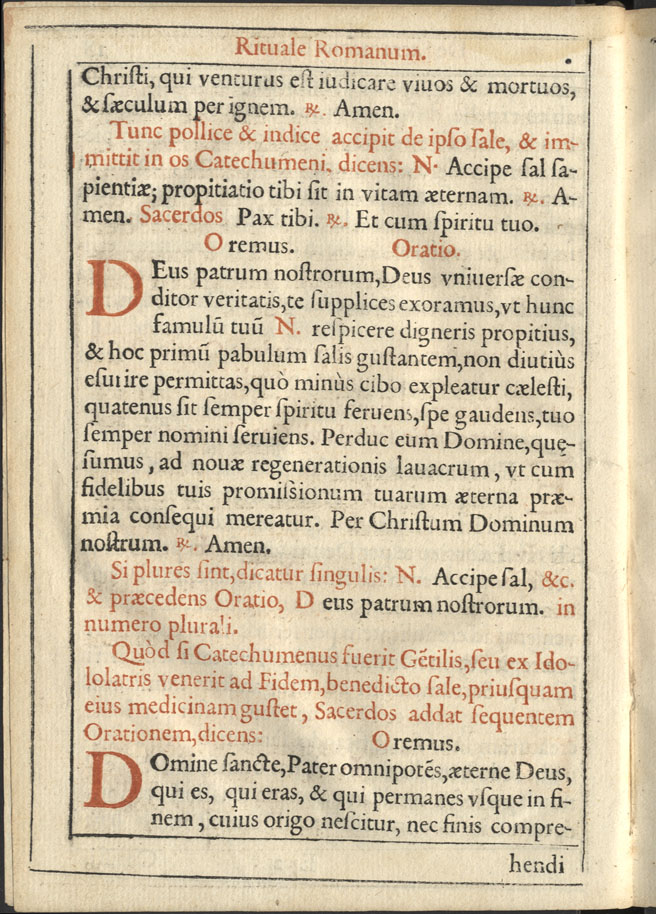 Rituale Romanum.
Chriſti, qui venturus eſt iudicare viuos & mortuos,
& ſæculum per ignem. ℟. Amen.
Tunc pollice & indice accipit de ipſo ſale, & im-
mittit in os Catechumeni, dicens: N. Accipe ſal ſa-
pientiæ; propitiatio tibi ſit in vitam æternam. ℟. A-
men. Sacerdos Pax tibi. ℟. Et cum ſpiritu tuo.
Oremus. Oratio.
DEus patrum noſtrorum, Deus vniuerſæ con-
ditor veritatis, te ſupplices exoramus, vt hunc
famulū tuū N. reſpicere digneris propitius,
& hoc primū pabulum ſalis guſtantem, non diutiùs
eſurire permittas, quò minùs cibo expleatur cæleſti,
quatenus ſit ſemper ſpiritu feruens, ſpe gaudens, tuo
ſemper nomini ſeruiens. Perduc eum Domine, quę-
ſumus, ad nouæ regenerationis lauacrum, vt cum
fidelibus tuis promiſsionum tuarum æterna præ-
mia conſequi mereatur. Per Chriſtum Dominum
noſtrum. ℟. Amen.
Si plures ſint, dicatur ſingulis: N. Accipe ſal, &c.
& præcedens Oratio, Deus patrum noſtrorum. in
numero plurali.
Quòd ſi Catechumenus fuerit Gētilis, ſeu ex Ido-
lolatris venerit ad Fidem, benedicto ſale, priuſquam
eius medicinam guſtet, Sacerdos addat ſequentem
Orationem, dicens: Oremus.
DOmine ſancte, Pater omnipotēs, æterne Deus,
qui es, qui eras, & qui permanes vſque in fi-
nem, cuius origo neſcitur, nec finis compre-
hendi